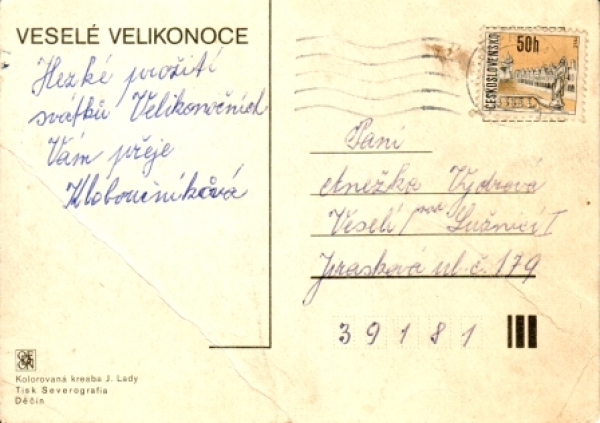 VESELÉ VELIKONOCE
Hezké prožití
svátků Velikonočních
Vám přeje
Kloboučníková
ČESKOSLOVENSKO
50h
Paní
Anežka Vydrová
Veselí nad Lužnicí I
Jiráskova ul. č. 179
39181
Kolorovaná kresba J. Lady
Tisk Severografia
Děčín